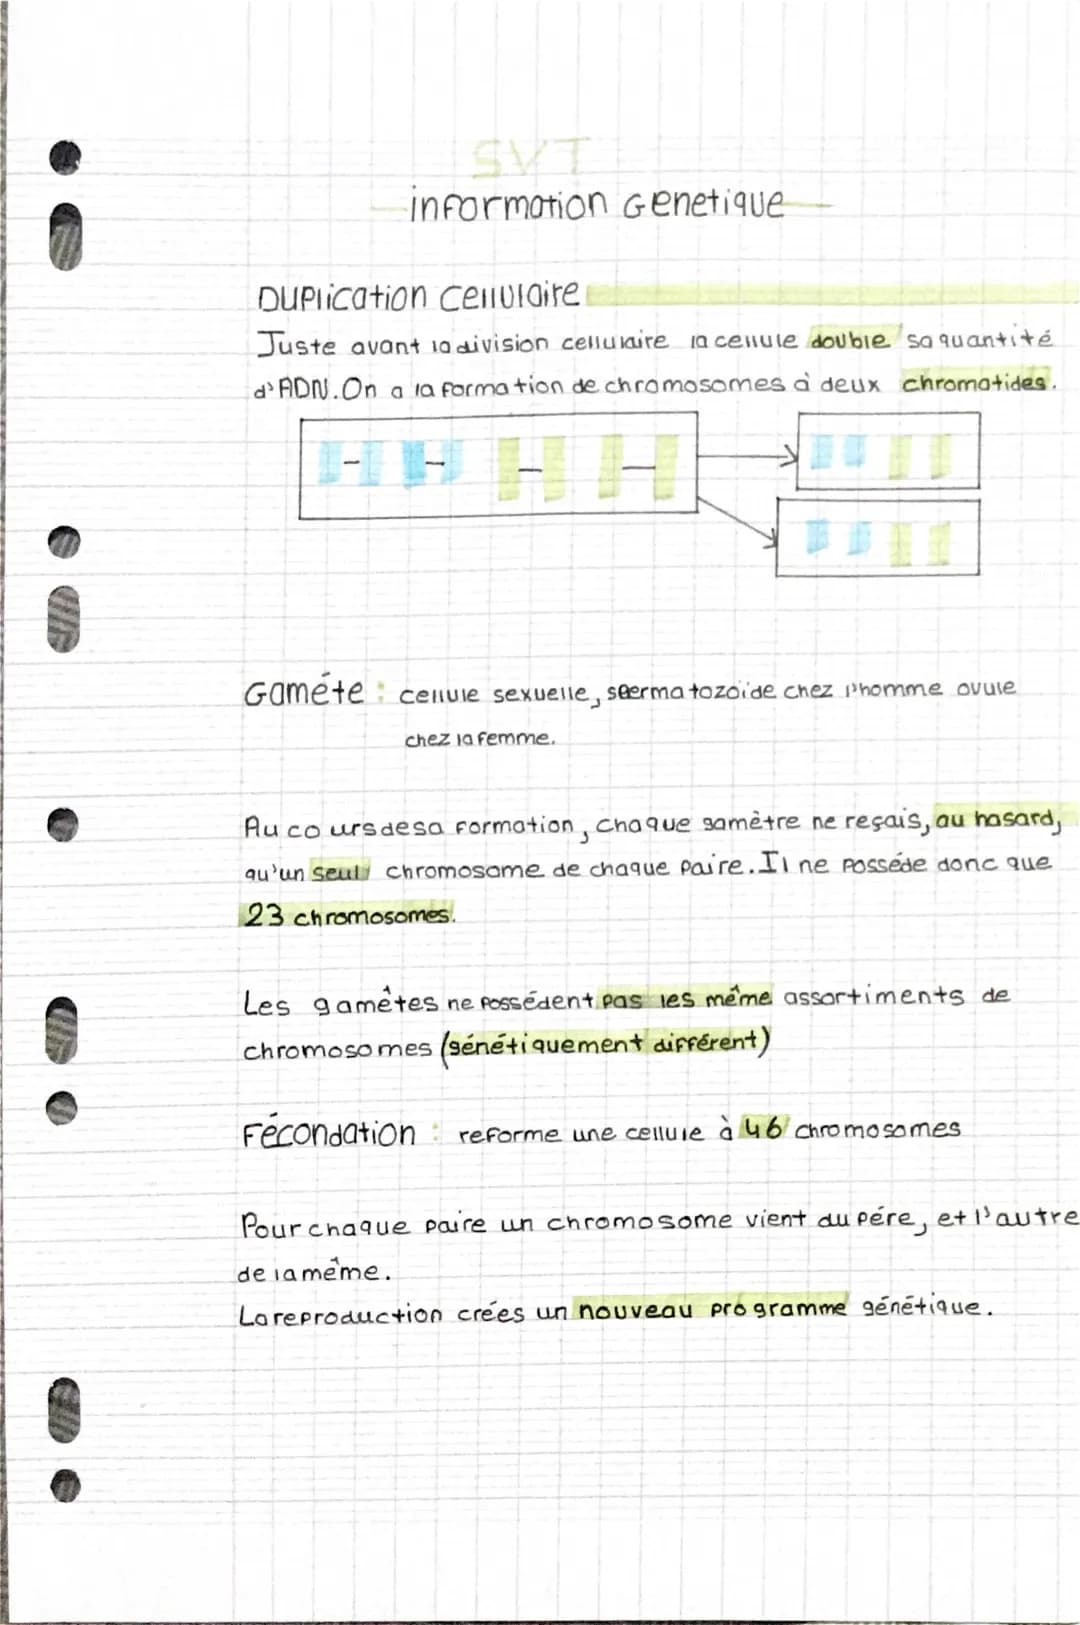 SVT
information Genetique
Duplication cellulaire
Juste avant la division cellulaire la cellule double sa quantité
d'ADN. On a la formation de chromosomes à deux chromatides.
Gaméte : cellule sexuelle, spermatozoïde chez l'homme ovule
chez la femme.
Au cours de sa formation, chaque gamètre ne reçais, au hasard,
qu'un seul chromosome de chaque paire. Il ne posséde donc que
23 chromosomes.
Les gamêtes ne possédent pas les même assortiments de
chromosomes (génétiquement différent)
Fécondation : reforme une cellule à 46 chromosomes
Pour chaque paire un chromosome vient du pére, et l'autre
de la même.
La reproduction crées un nouveau programme génétique.